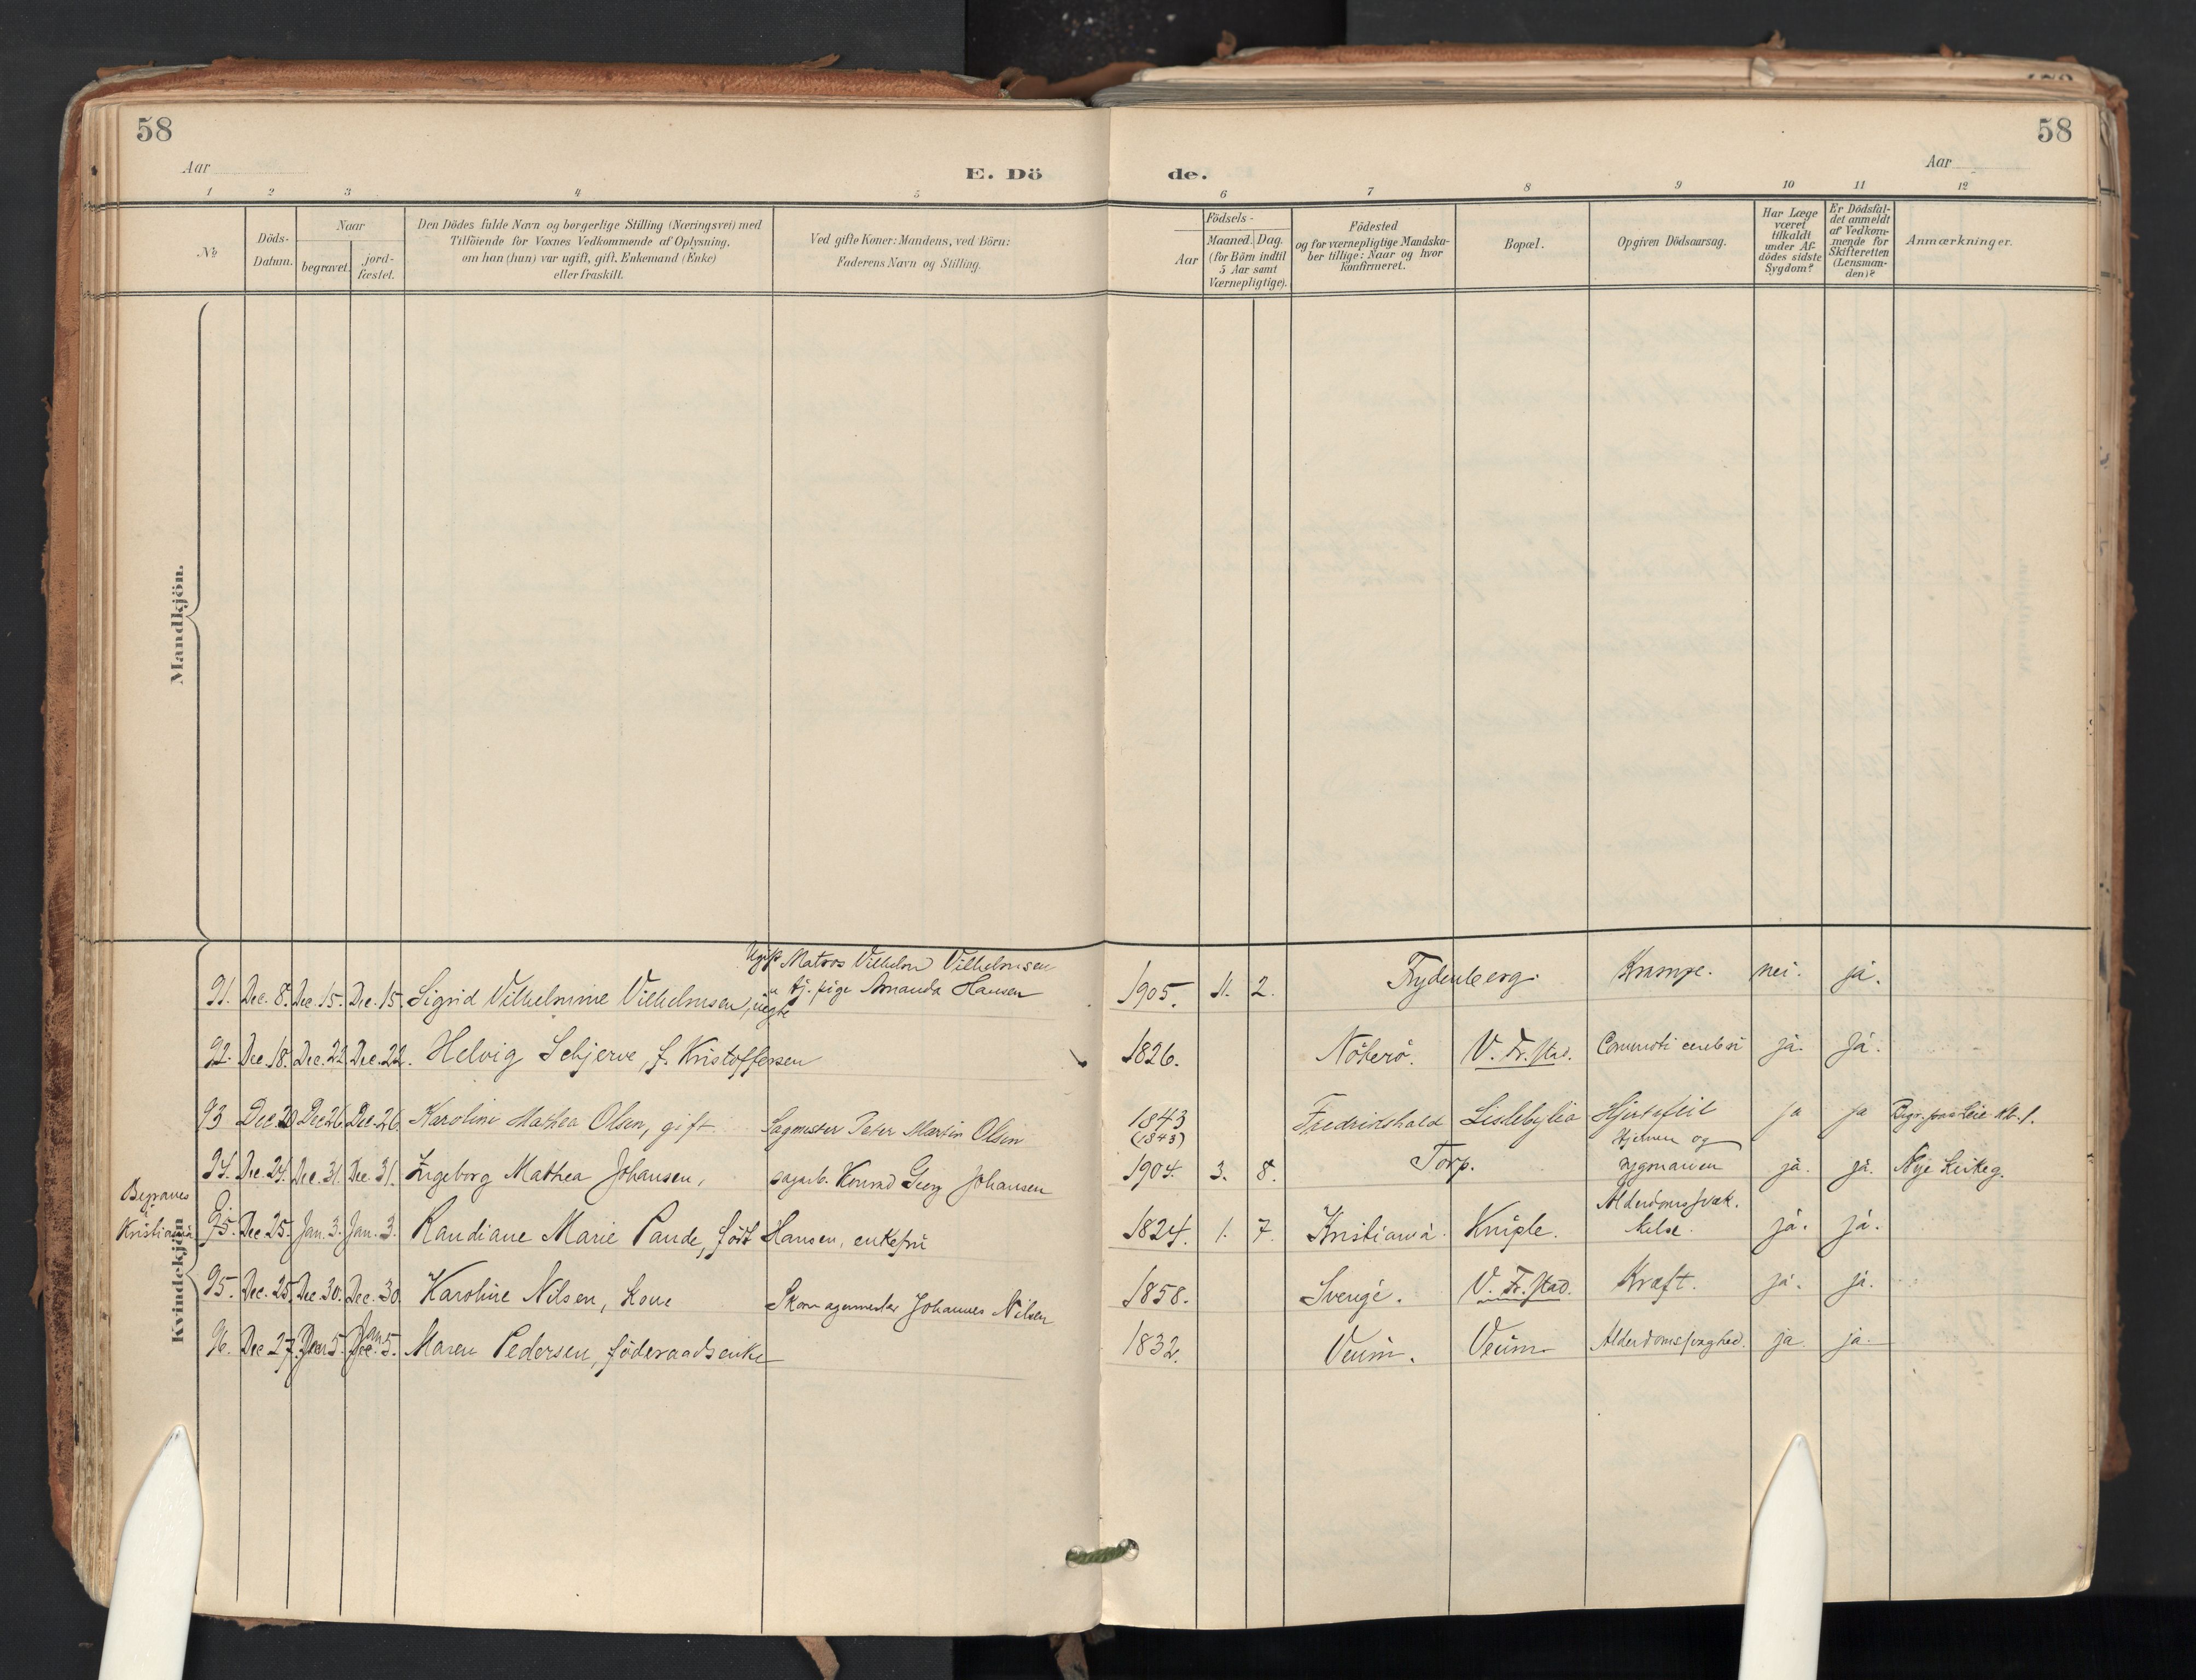 58
58
Aar
E. Dö
de.
Aar
1 2 3 4 5 6 7 8 9 10 11 12
№
Döds-
Datum.
Naar
begravet.
jord-
fæstet.
Den Dödes fulde Navn og borgerlige Stilling (Næringsvei) med
Tilföiende for Voxnes Vedkommende af Oplysning,
om han (hun) var ugift, gift, Enkemand (Enke)
eller fraskilt.
Ved gifte Koner: Mandens, ved Börn:
Faderens Navn og Stilling.
Födsels-
Aar
Maaned. Dag.
(for Börn indtil
5 Aar samt
Værnepligtige).
Födested
og for værnepligtige Mandska-
ber tillige: Naar og hvor
konfirmeret.
Bopæl.
Opgiven Dödsaarsag.
Har Læge
været
tilkaldt
under Af-
dödes sidste
Sygdom?
Er Dödsfal-
det anmeldt
af Vedkom-
mende for
Skifteretten
(Lensman-
den)?
Anmærkninger.
Mandkjön.
Kvindekjön
Ugift Matros Vilhelm Vilhelmsen
Tj. pige Amanda Hansen
91. Dec. 8. Dec. 15. Dec. 15. Sigrid Vilhelmine Vilhelmsen, uegte 1905. 11. 2. Frydenberg. Krampe. nei. ja.
92. Dec. 18. Dec. 22. Dec. 22. Helvig Schjerve, f. Kristoffersen 1826. Nöterö. V. Fr.stad. ja. Ja.
93 Dec. 20 Dec 26 Dec. 26. Karoline Mathea Olsen, gift Sagmester Peter Martin Olsen 1843 Fredrikshald Lislebylia Hjertefeil ja ja
(1843)
Hjernen og
94. Dec. 24. Dec. 31. Dec. 31. Ingeborg Mathea Johansen, sagarb. Konrad Georg Johansen 1904. 3. 8. Torp. rygmarven ja. ja. Nye Kirkeg.
Begraves
i
Kristiania
Alderdomssvæk.
95. Dec 25. Jan. 3. Jan. 3. Randiane Marie Paude, født Hansen, enkefru 1824. 1. 7. Kristiania. Kniple. kelse. ja. ja.
95. Dec. 25. Dec 30. Dec. 30 Karoline Nilsen, kone Skomagermester Johannes Nilsen 1858. Sverige. V. Fr.stad. Kræft. ja. ja.
Jan
96. Dec 27. 5. Dec. 5. Maren Pedersen, föderaadsenke 1832. Veum. Veum Alderdomssvaghed. ja ja.